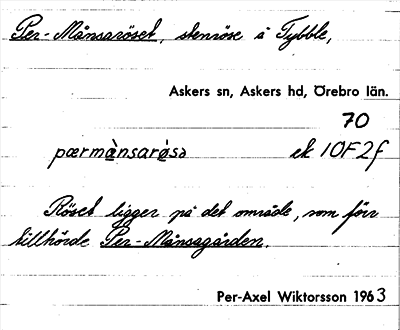 Per-Månsaröset, stenröse å Tybble,
Askers sn, Askers hd, Örebro län.
70
pærmànsarø̀sə ek 10F2f
Röset ligger på det område, som förr
tillhörde Per-Månsagården.
Per-Axel Wiktorsson 1963